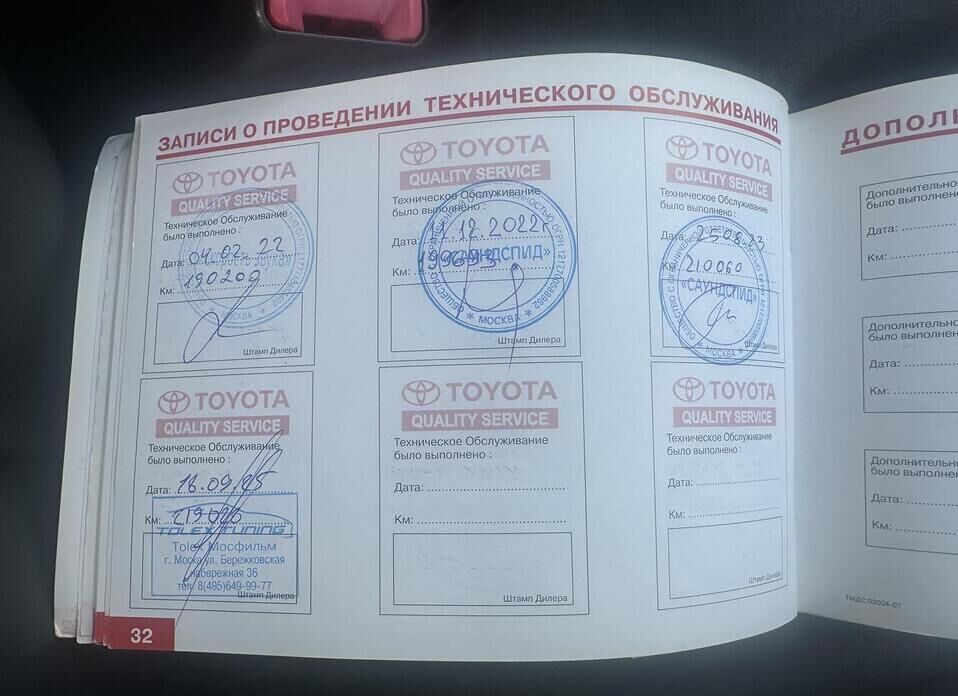 ЗАПИСИ О ПРОВЕДЕНИИ ТЕХНИЧЕСКОГО ОБСЛУЖИВАНИЯ
TOYOTA
QUALITY SERVICE
Техническое Обслуживание
было выполнено :
Дата: 04.02.22
Км: 190200
МОСКВА
Штамп Дилера
TOYOTA
QUALITY SERVICE
Техническое Обслуживание
было выполнено :
Дата: 12.2022г
Км: 199693
«САУНДСПИД»
МОСКВА
Штамп Дилера
TOYOTA
QUALITY SERVICE
Техническое Обслуживание
было выполнено :
Дата: 25.08.23
Км: 210060
«САУНДСПИД»
МОСКВА
TOYOTA
QUALITY SERVICE
Техническое Обслуживание
было выполнено :
Дата: 18.09.25
Км: 219020
TOLEX TUNING
Tolex Мосфильм
г. Москва ул. Бережковская
набережная 36
тел. 8(495)649-99-77
Штамп Дилера
TOYOTA
QUALITY SERVICE
Техническое Обслуживание
было выполнено :
Дата:
Км:
Штамп Дилера
TOYOTA
QUALITY SERVICE
Техническое Обслуживание
было выполнено :
Дата:
Км:
Штамп Дилера
32
ДОПОЛН
Дополнительно
было выполнено
Дата:
Км:
Дополнительно
было выполнено
Дата:
Км:
Дополнительно
было выполнено
Дата:
Км:
ТМДС 03004-07